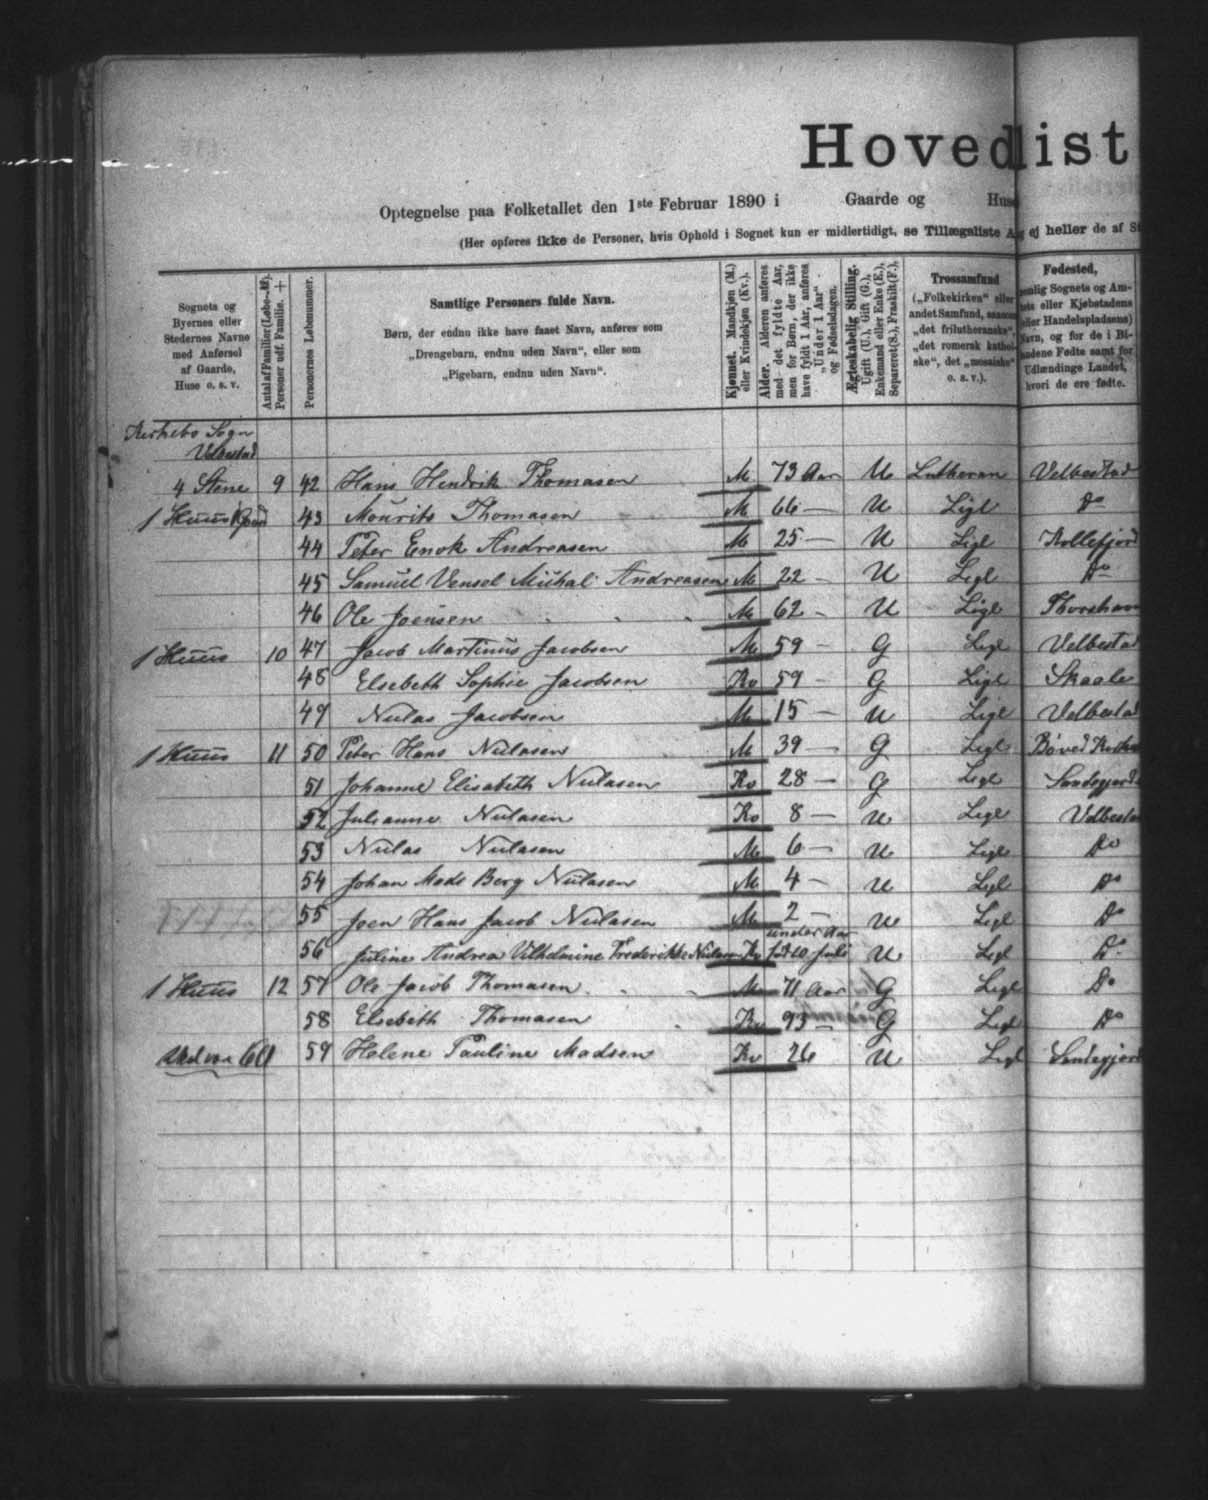 Hovedlist
Optegnelse paa Folketallet den 1ste Februar 1890 i Gaarde og Huse
(Her opføres ikke de Personer, hvis Ophold i Sognet kun er midlertidigt, se Tillægsliste A, ej heller de af
Sognets og Byernes eller Stedernes Navne med Anførsel af Gaarde, Huse o. s. v.
Antal af Familier (Løbe-№). Personer udf. Familie. +
Personernes Løbenummer.
Samtlige Personers fulde Navn.
Børn, der endnu ikke have faaet Navn, anføres som „Drengebarn, endnu uden Navn“, eller som „Pigebarn, endnu uden Navn“.
Kjønnet. Mandkjøn (M.) eller Kvindekjøn (Kv.).
Alder. Alderen anføres med det fyldte Aar, men for Børn, der ikke have fyldt 1 Aar, anføres „Under 1 Aar“ og Fødselsdagen.
Ægteskabelig Stilling. Ugift (U.), Gift (G.), Enkemand eller Enke (E.), Separeret (S.), Fraskilt (F.),
Trossamfund („Folkekirken“ eller andet Samfund, saasom „det frilutheranske“, „det romersk katholske“, det „mosaiske“ o. s. v.).
Fødested, nemlig Sognets og Amtets eller Kjøbstadens (eller Handelspladsens) Navn, og for de i Bilandene Fødte samt for Udlændinge Landet, hvori de ere fødte.
Sogn
Velbestad
4 Stene 9 42 Hans Hendrik Thomasen M 73 Aar U Lutheran Velbestad
1 Huus 43 Mourits Thomasen M 66 — U Ligl Do
44 Peter Enok Andreasen M 25 — U Ligl Kollefjord
45 Samuel Vensel Michal Andreasen M 22 - U Ligl Do
46 Ole Joensen M 62 - U Ligl Thorshavn
1 Huus 10 47 Jacob Martinus Jacobsen M 59 - G Ligl Velbestad
48 Elsebeth Sophie Jacobsen Kv 59 - G Ligl Skaale
49 Niclas Jacobsen M 15 — U Ligl Velbestad
1 Huus 11 50 Peter Hans Niclasen M 39 — G Ligl Bøved
51 Johanne Elisabeth Niclasen Kv 28 — G Ligl
52 Julianne Niclasen Kv 8 — U Ligl Velbestad
53 Niclas Niclasen M 6 — U Ligl Do
54 Johan Mads Berg Niclasen M 4 — U Ligl Do
55 Joen Hans Jacob Niclasen M 2 — U Ligl Do
56 Juline Andrea Vilhelmine Frederikke Niclasen Kv under Aar fød 10 Juli U Ligl Do
1 Huus 12 57 Ole Jacob Thomasen M 71 Aar G Ligl Do
58 Elsebeth Thomasen Kv 93 — G Ligl Do
59 Helene Pauline Madsen Kv 26 U Ligl